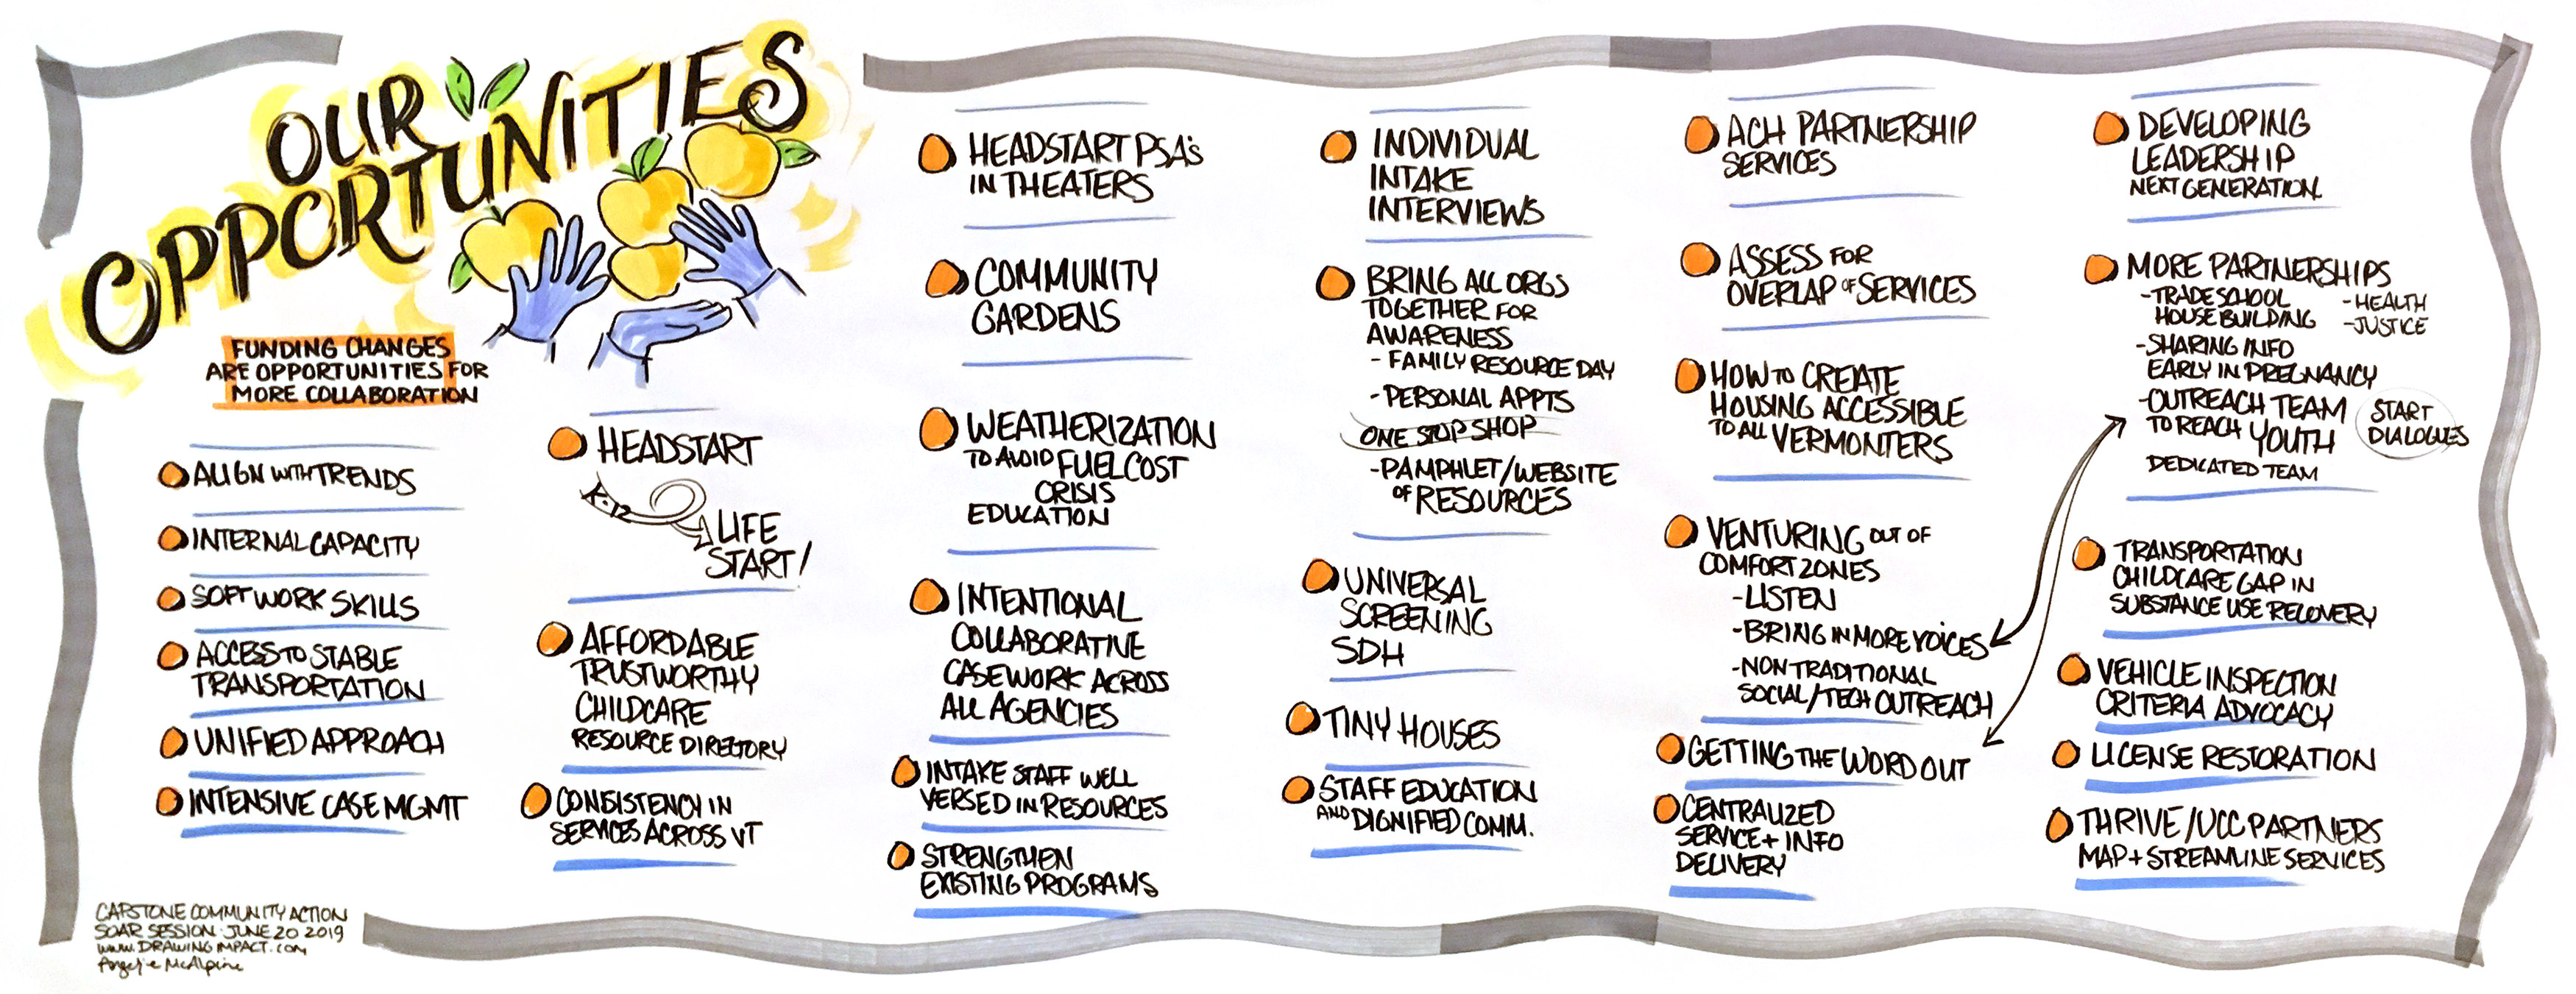 OUR
OPPORTUNITIES
FUNDING CHANGES
ARE OPPORTUNITIES FOR
MORE COLLABORATION
ALIGN WITH TRENDS
INTERNAL CAPACITY
SOFT WORK SKILLS
ACCESS TO STABLE
TRANSPORTATION
UNIFIED APPROACH
INTENSIVE CASE MGMT
HEADSTART
K-12
LIFE
START!
AFFORDABLE
TRUSTWORTHY
CHILDCARE
RESOURCE DIRECTORY
CONSISTENCY IN
SERVICES ACROSS VT
HEADSTART PSA's
IN THEATERS
COMMUNITY
GARDENS
WEATHERIZATION
TO AVOID FUEL COST
CRISIS
EDUCATION
INTENTIONAL
COLLABORATIVE
CASEWORK ACROSS
ALL AGENCIES
INTAKE STAFF WELL
VERSED IN RESOURCES
STRENGTHEN
EXISTING PROGRAMS
INDIVIDUAL
INTAKE
INTERVIEWS
BRING ALL ORGS
TOGETHER FOR
AWARENESS
- FAMILY RESOURCE DAY
- PERSONAL APPTS
ONE STOP SHOP
- PAMPHLET/WEBSITE
OF RESOURCES
UNIVERSAL
SCREENING
SDH
TINY HOUSES
STAFF EDUCATION
AND DIGNIFIED COMM.
ACH PARTNERSHIP
SERVICES
ASSESS FOR
OVERLAP OF SERVICES
HOW TO CREATE
HOUSING ACCESSIBLE
TO ALL VERMONTERS
VENTURING OUT OF
COMFORT ZONES
- LISTEN
- BRING IN MORE VOICES
- NON TRADITIONAL
SOCIAL/TECH OUTREACH
GETTING THE WORD OUT
CENTRALIZED
SERVICE + INFO
DELIVERY
DEVELOPING
LEADERSHIP
NEXT GENERATION
MORE PARTNERSHIPS
- TRADE SCHOOL
HOUSE BUILDING
- HEALTH
- JUSTICE
- SHARING INFO
EARLY IN PREGNANCY
- OUTREACH TEAM
TO REACH YOUTH
DEDICATED TEAM
START
DIALOGUES
TRANSPORTATION
CHILDCARE GAP IN
SUBSTANCE USE RECOVERY
VEHICLE INSPECTION
CRITERIA ADVOCACY
LICENSE RESTORATION
THRIVE/UCC PARTNERS
MAP + STREAMLINE SERVICES
CAPSTONE COMMUNITY ACTION
SOAR SESSION · JUNE 20 2019
www.DRAWINGIMPACT.com
Angelique McAlpine